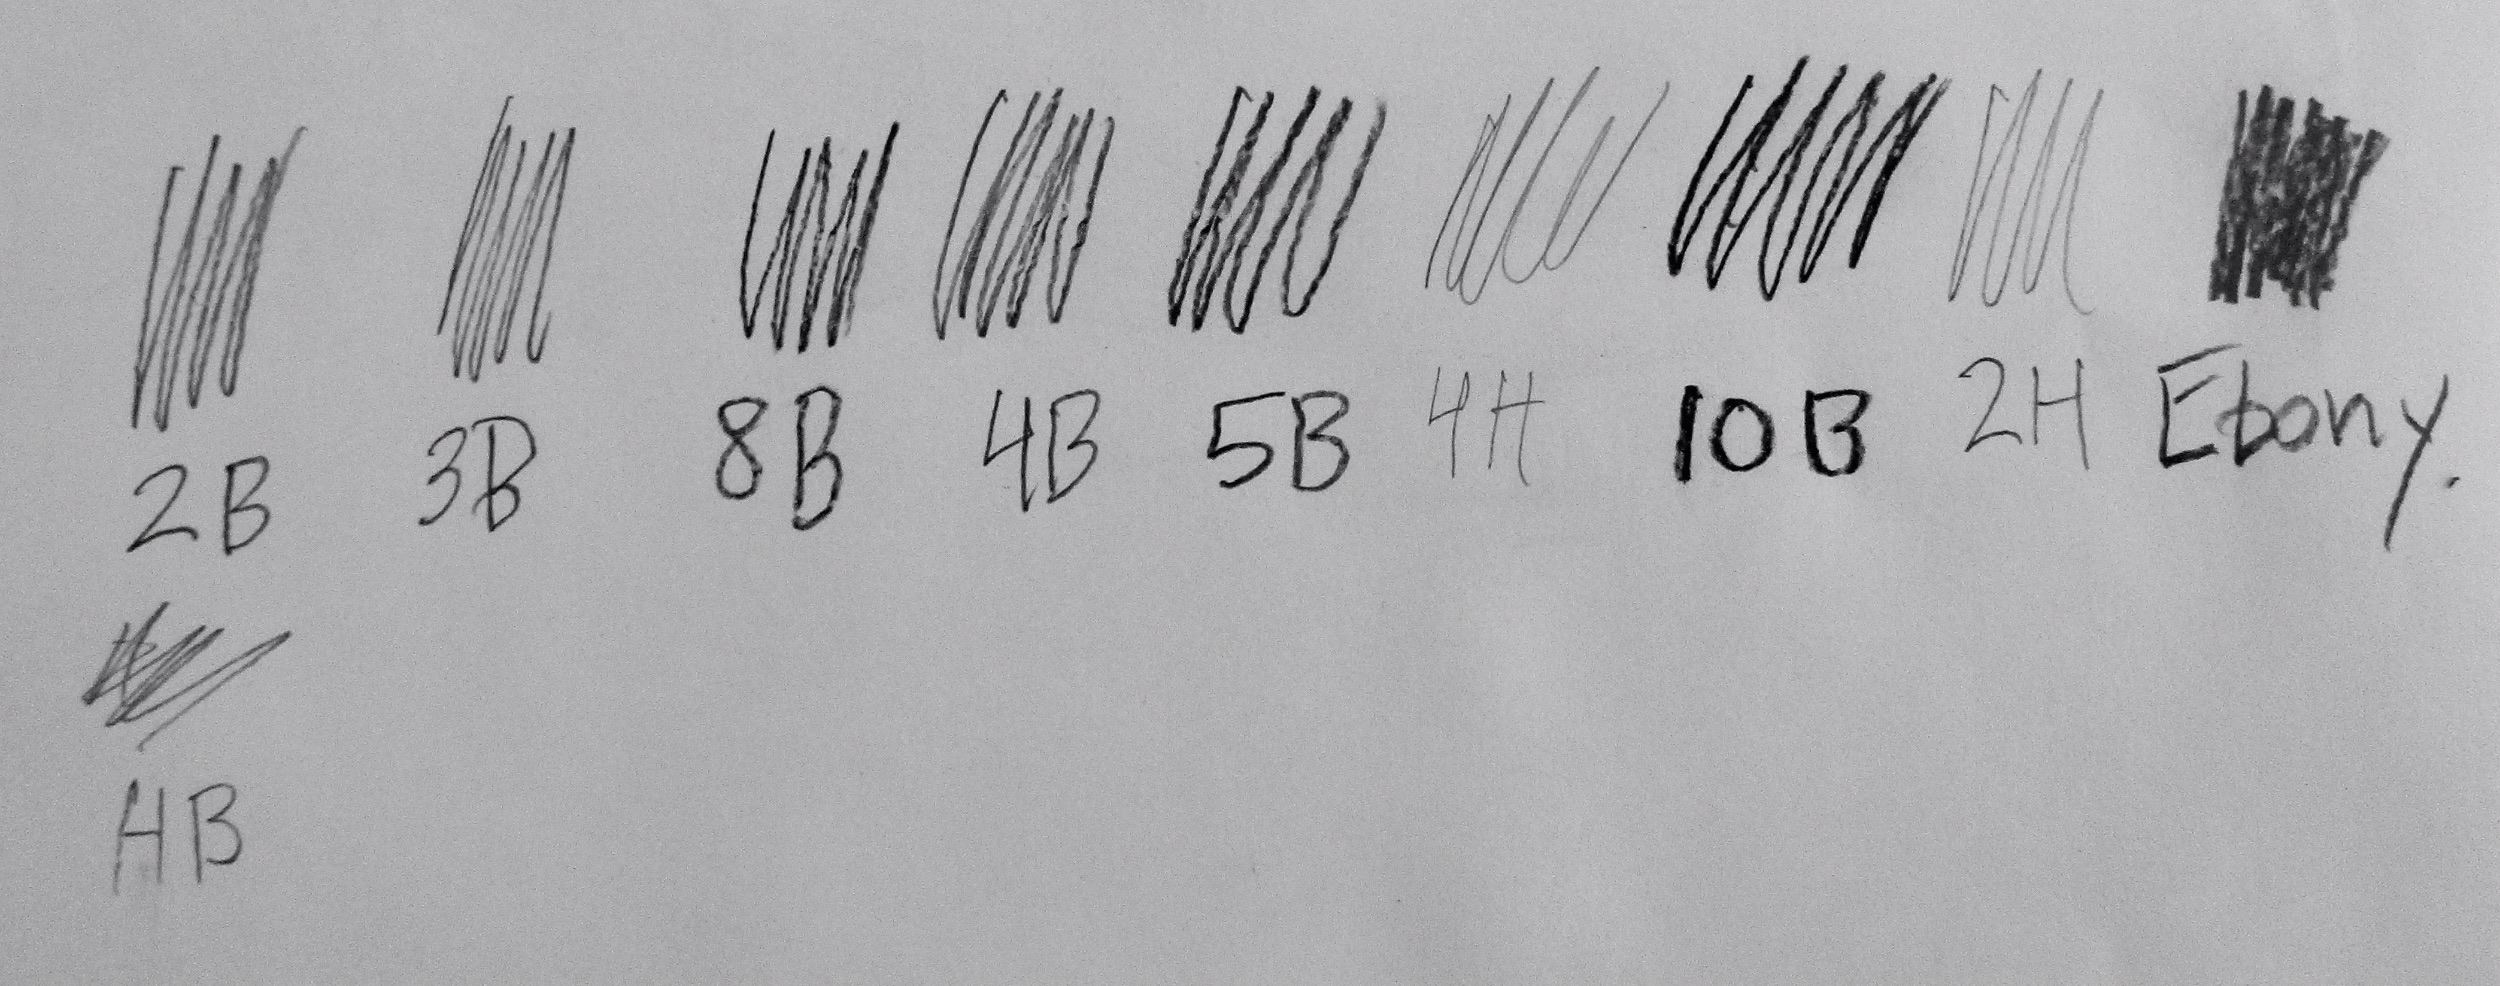 2B 3B 8B 4B 5B 4H 10B 2H Ebony.
HB